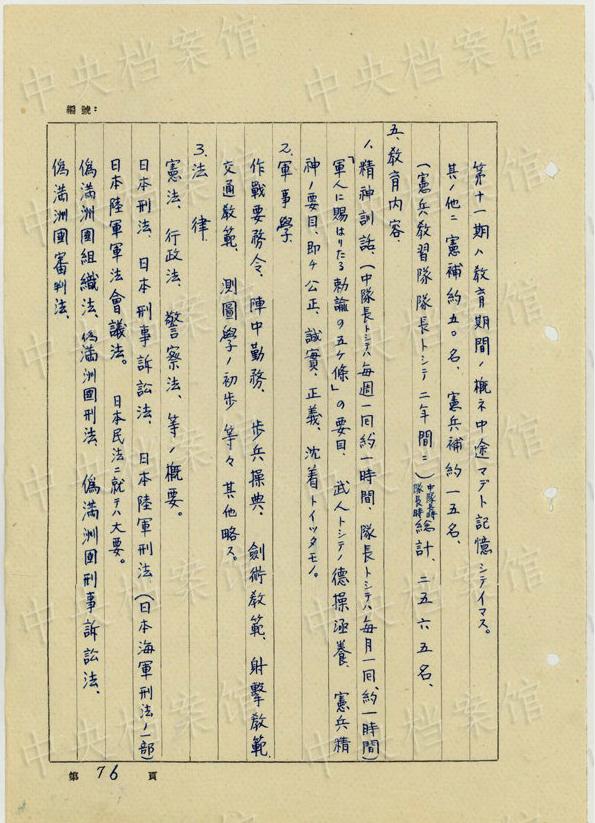 編號:
第十一期ハ教育期間ノ概ネ中途マデト記憶シテイマス。
其ノ他ニ憲補約五〇名、憲兵補約一五名、
(憲兵教習隊隊長トシテ二年間ニ)中隊長時隊長時総計、二五六五名、
五、教育内容、
1、精神訓話、(中隊長トシテハ毎週一回約一時間、隊長トシテハ毎月一回、約一時間)
「軍人に賜はりたる勅諭の五ケ條」の要目、武人トシテノ德操涵養、憲兵精
神ノ要目、即チ公正、誠實、正義、沈着トイッタモノ。
2、軍事學
作戰要務令、陣中勤務、歩兵操典、劍術教範、射撃教範、
交通教範、測圖學ノ初步等々其他略ス。
3、法律
憲法、行政法、警察法、等ノ概要。
日本刑法、日本刑事訴訟法、日本陸軍刑法(日本海軍刑法ノ一部)
日本陸軍軍法會議法。日本民法ニ就テハ大要。
偽満洲囯組織法、偽満洲囯刑法、偽満洲囯刑事訴訟法、
偽満洲囯審判法、
第76頁
中央档案馆